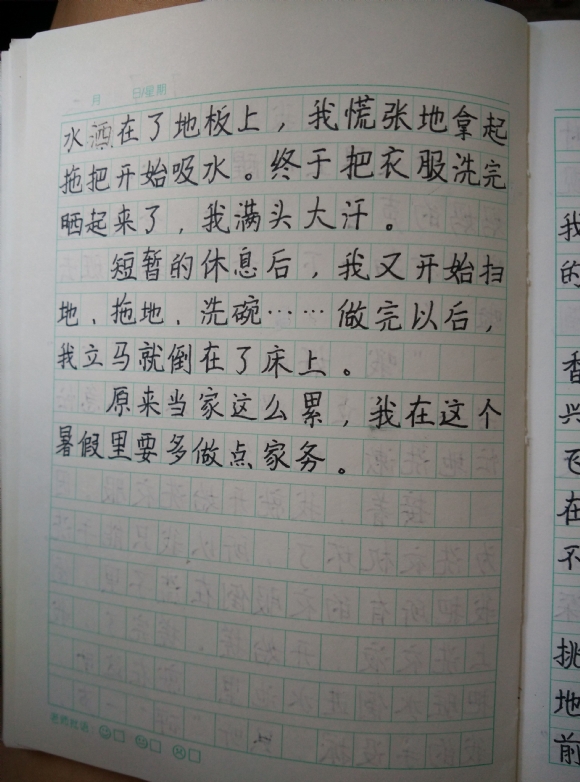 月 日 星期
水洒在了地板上，我慌张地拿起
拖把开始吸水。终于把衣服洗完
晒起来了，我满头大汗。
短暂的休息后，我又开始扫
地、拖地、洗碗……做完以后，
我立马就倒在了床上。
原来当家这么累，我在这个
暑假里要多做点家务。
老师评语：
我
的
香
兴
飞
在
不
挑
地
前